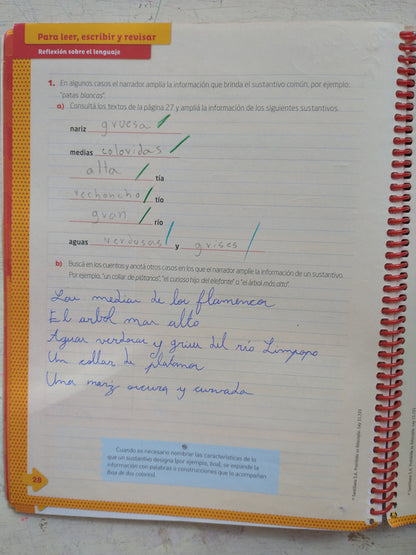 Para leer, escribir y revisar
Reflexión sobre el lenguaje
1. En algunos casos el narrador amplía la información que brinda el sustantivo común, por ejemplo:
"patas blancas".
a) Consultá los textos de la página 27 y ampliá la información de los siguientes sustantivos.
nariz gruesa
medias coloridas
alta tía
rechoncho tío
gran río
aguas verdosas y grises
b) Buscá en los cuentos y anotá otros casos en los que el narrador amplíe la información de un sustantivo.
Por ejemplo, "un collar de plátanos", "el curioso hijo del elefante" o "el árbol más alto".
Las medias de los flamencos
El arbol mas alto
Aguas verdosas y grises del río Limpopo
Un collar de platanos
Una nariz oscura y curvada
Cuando es necesario nombrar las características de lo
que un sustantivo designa (por ejemplo, boa), se expande la
información con palabras o construcciones que lo acompañan
(boa de dos colores).
28